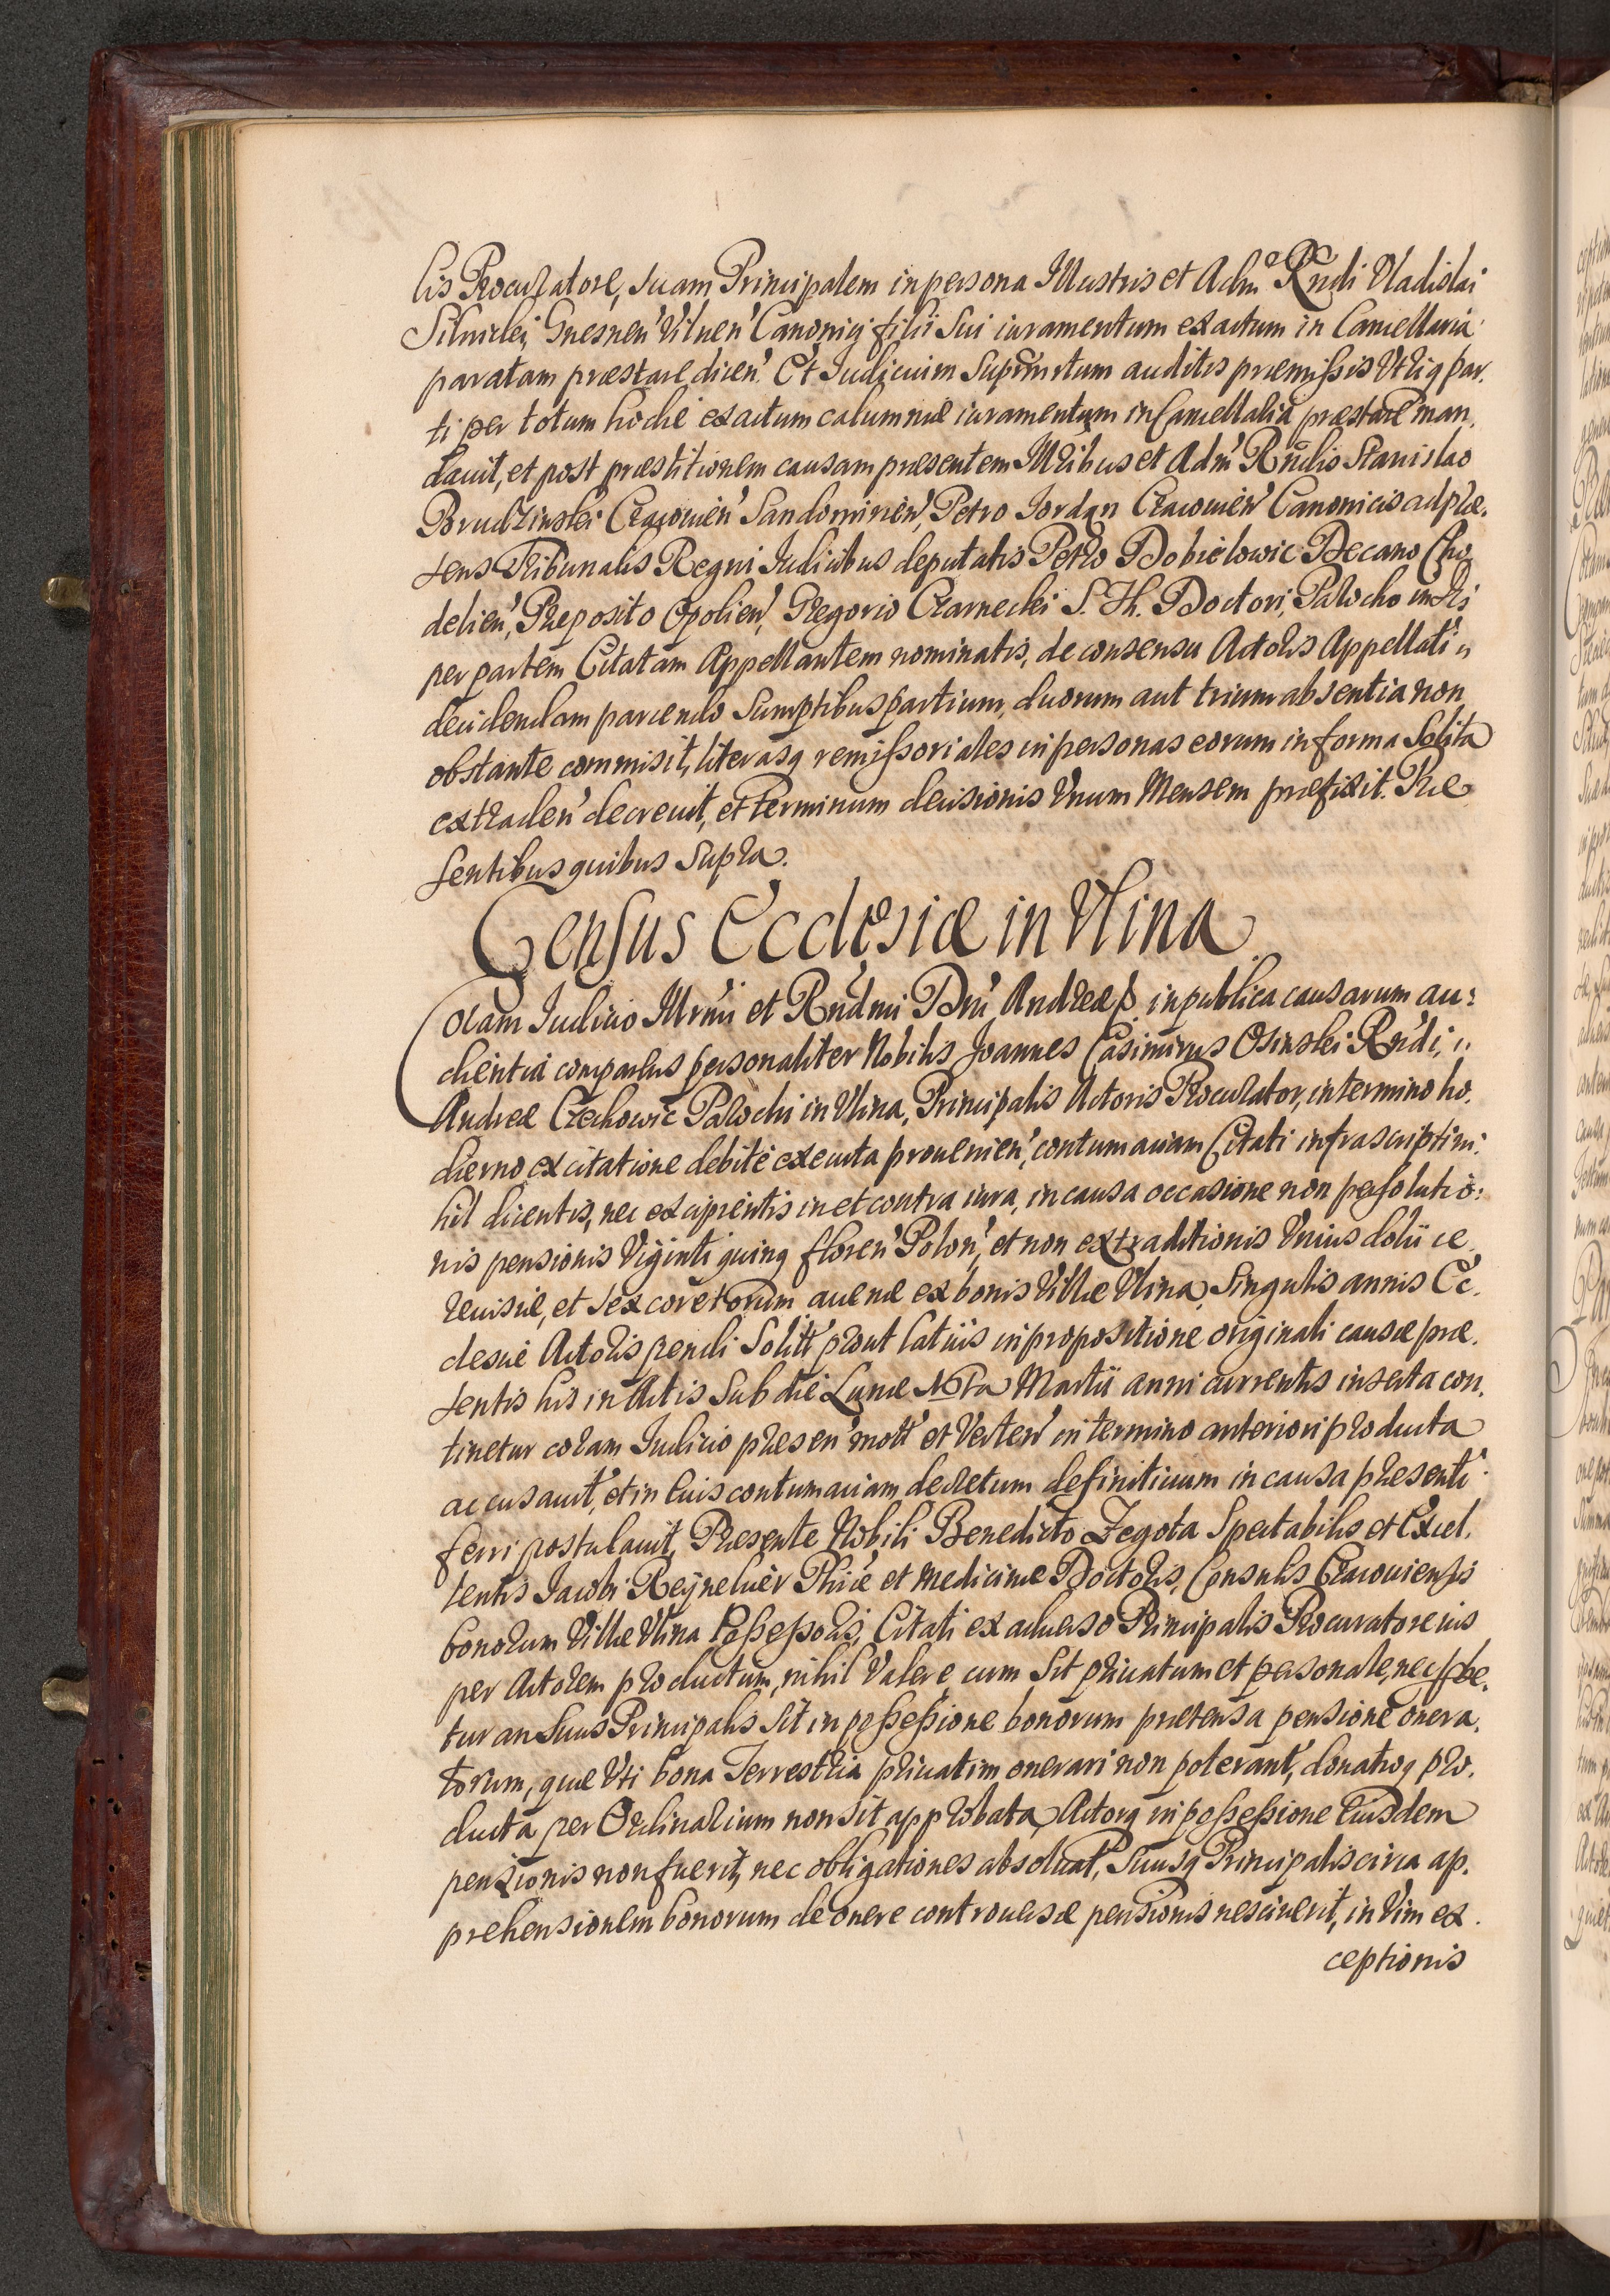 lis Procuratore, suam Principalem in persona Illustris et Adm Rndi Vladislai
Silnicki, Gnesnen' Vilnen' Canonici filii sui iuramentum exactum in Cancellaria
paratam præstare dicen'. Et Iudicium Suprmrtum auditis præmissis Vtriq par.
ti per totum hodie exactum calumniæ iuramentum in Cancellaria præstare man.
dauit, et post præstitionem causam præsentem Illribus et Adm' Rndis Stanislao
Borudzinski Cracouien' Sandomirien', Petro Jordan Cracouien' Canonicis ad præ.
sens Tribunalis Regni Iudicibus deputatis Petro Dobielowic Decano Cho
delien', Præposito Opolien', Gregorio Czarnecki S. Th. Doctori, Parocho in
per partem Citatam Appellantem nominatis, de consensu Actoris Appellati
decidendam parcendo Sumptibus partium, duorum aut trium absentia non
obstante commisit, literasq remissoriales in personas eorum in forma Solita
extraden' decreuit, et terminum decisionis Vnum Mensem præfixit. Præ
sentibus quibus Supra.
Census Ecclesiæ in Vlina
Coram Iudicio Illrmi et Rndmi Dni Andreæ p. in publica causarum au:
dientia comparens personaliter Nobilis Joannes Casimirus Osinski Rndi,
Andreæ Czechowic Parochi in Vlina, Principalis Actoris Procurator, in termino ho.
dierno ex citatione debitè executa prouenien', contumaciam Citati infrascripti ni:
hil dicentis, nec excipientis in et contra iura, in causa occasione non persolutio:
nis pensionis Viginti quinq floren' Polon', et non extraditionis Vnius dolii ce
reuisiæ, et sex coretorum auenæ ex bonis Villæ Vlina, Singulis annis Ec.
clesiæ Actoris pendi Solitt' prout latiùs in propositione originali causæ præ.
sentis his in Actis Sub die Lunæ Martii anni currentis inserta con.
tinetur coram Iudicio præsen' mott' et Verten' in termino anteriori producta
accusauit, et in eius contumaciam decretum definitiuum in causa præsenti
ferri postulauit, Præsente Nobili Benedicto Zegota Spectabilis et Excel.
lentis Jacobi Reynekier Phiæ et Medicinæ Doctoris, Consulis Cracouiensis
bonorum Villæ Vlina Possessoris, Citati ex aduerso Principalis Procuratore ius
per Actorem productum, nihil Valere, cum Sit priuatum et personale, nec
tur an Suus Principalis Sit in possessione bonorum prætensa pensione onera.
torum, quæ Vti bona Terrestria priuatim onerari non poterant, donatioq pro.
ducta per Ordinarium non sit approbata, Actorq in possessione Eiusdem
pensionis non fuerit, nec obligationes absoluat, Suusq Principalis circa ap.
prehensionem bonorum de onere controuersæ pensionis nesciuerit, in Vim ex.
ceptionis